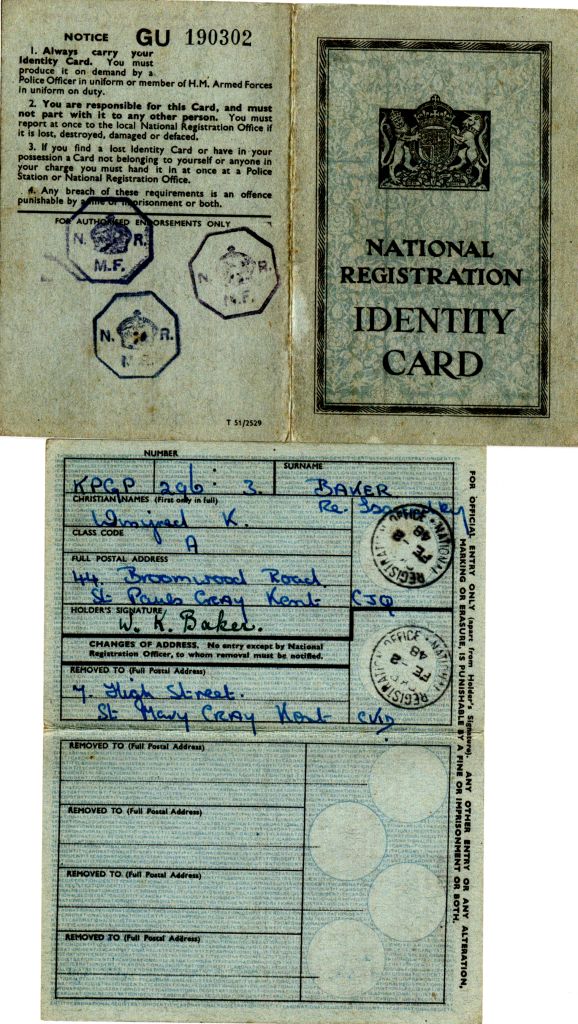 NOTICE GU 190302
1. Always carry your
Identity Card. You must
produce it on demand by a
Police Officer in uniform or member of H.M. Armed Forces
in uniform on duty.
2. You are responsible for this Card, and must
not part with it to any other person. You must
report at once to the local National Registration Office if
it is lost, destroyed, damaged or defaced.
3. If you find a lost Identity Card or have in your
possession a Card not belonging to yourself or anyone in
your charge you must hand it in at once at a Police
Station or National Registration Office.
4. Any breach of these requirements is an offence
punishable by a fine or imprisonment or both.
FOR AUTHORISED ENDORSEMENTS ONLY
N. R.
M.F.
N. R.
M.F.
N. R.
M.F.
T 51/2529
NATIONAL
REGISTRATION
IDENTITY
CARD
NUMBER SURNAME
KPGP 296 : 3. BAKER
Re. Issue
CHRISTIAN NAMES (First only in full)
Winifred K.
CLASS CODE
A
FULL POSTAL ADDRESS
44. Broomwood Road.
St Pauls Cray Kent CJQ
HOLDER'S SIGNATURE
W. K. Baker.
CHANGES OF ADDRESS. No entry except by National
Registration Officer, to whom removal must be notified.
REMOVED TO (Full Postal Address)
7. High Street.
St Mary Cray Kent CKD
REMOVED TO (Full Postal Address)
REMOVED TO (Full Postal Address)
REMOVED TO (Full Postal Address)
REMOVED TO (Full Postal Address)
NATIONAL REGISTRATION OFFICE
FE
48
NATIONAL REGISTRATION OFFICE
2
FE
48
FOR OFFICIAL ENTRY ONLY (apart from Holder's Signature). ANY OTHER ENTRY OR ANY ALTERATION,
MARKING OR ERASURE, IS PUNISHABLE BY A FINE OR IMPRISONMENT OR BOTH.